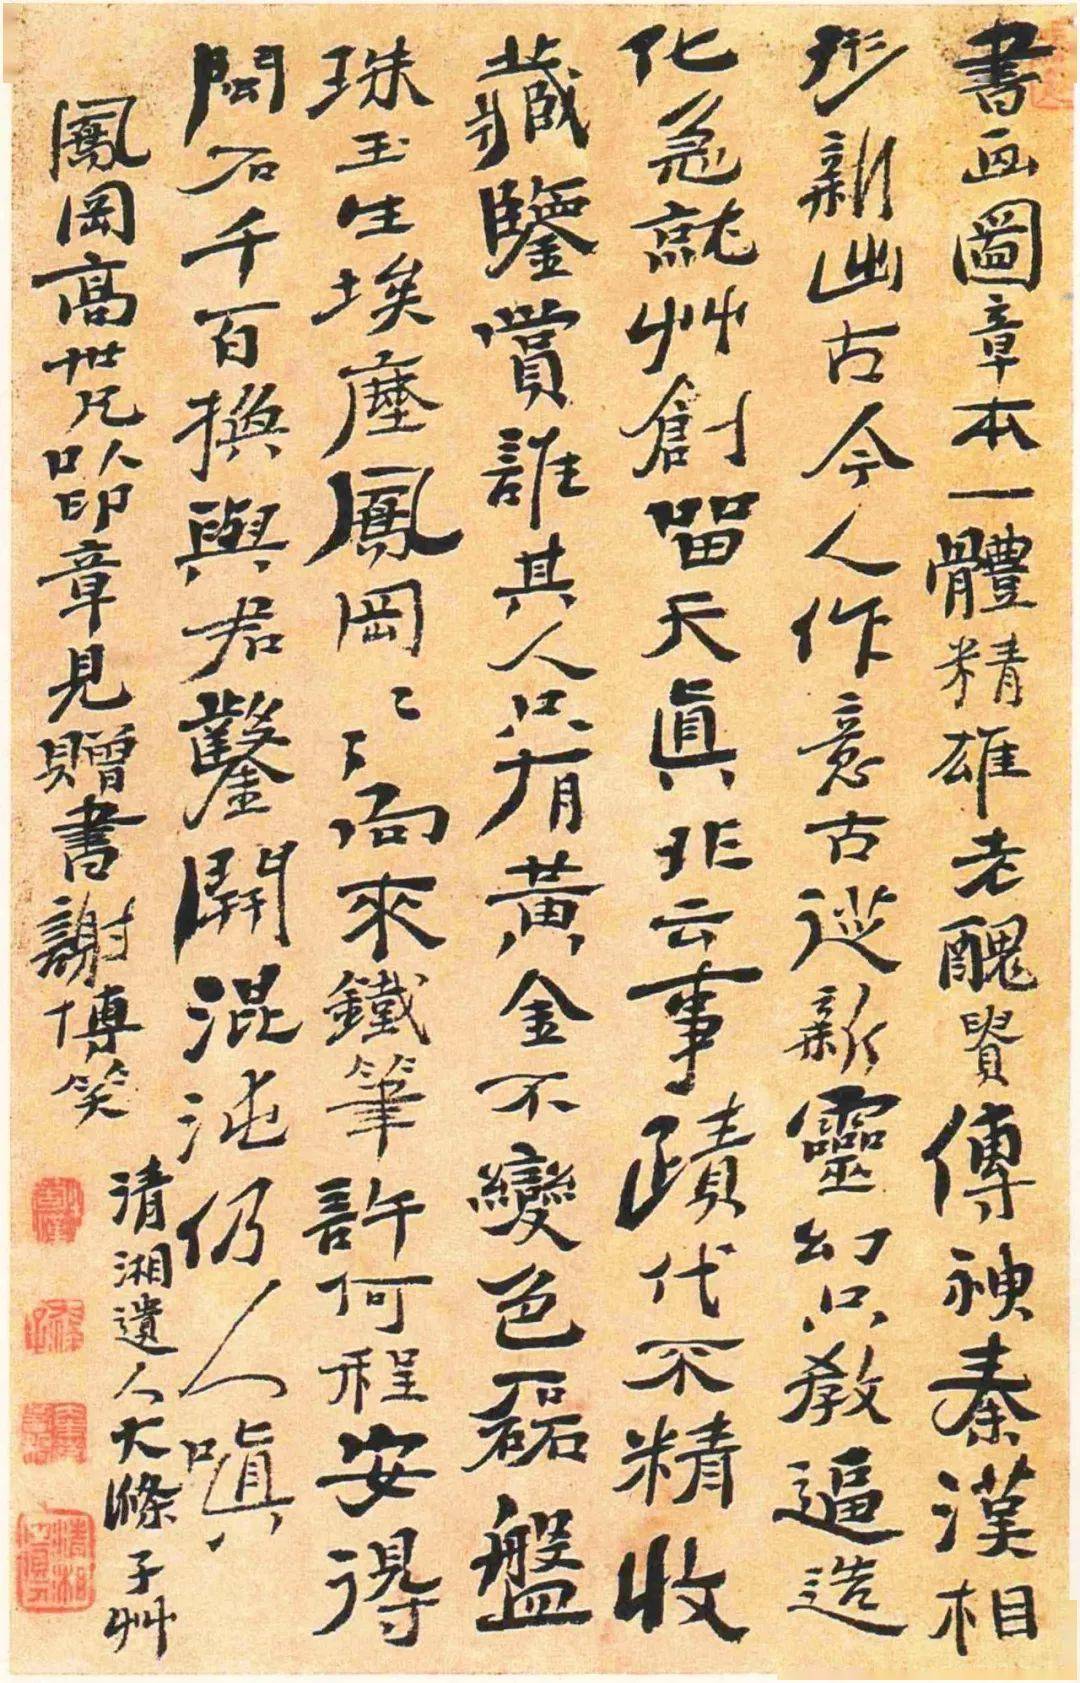 書画圖章本一體精雄老醜貴傳神秦漢相
形新出古今人作意古從新靈幻只教逼造
化急就艸創留天真非云事蹟代不精收
藏鑒賞誰其人只有黃金不變色磊盤
珠玉生埃塵鳳岡鳳岡向來鐵筆許何程安得
閩石千百換與君鑿開混沌仍人嗔
鳳岡高世兄以印章見贈書謝博笑
清湘遺人大滌子艸